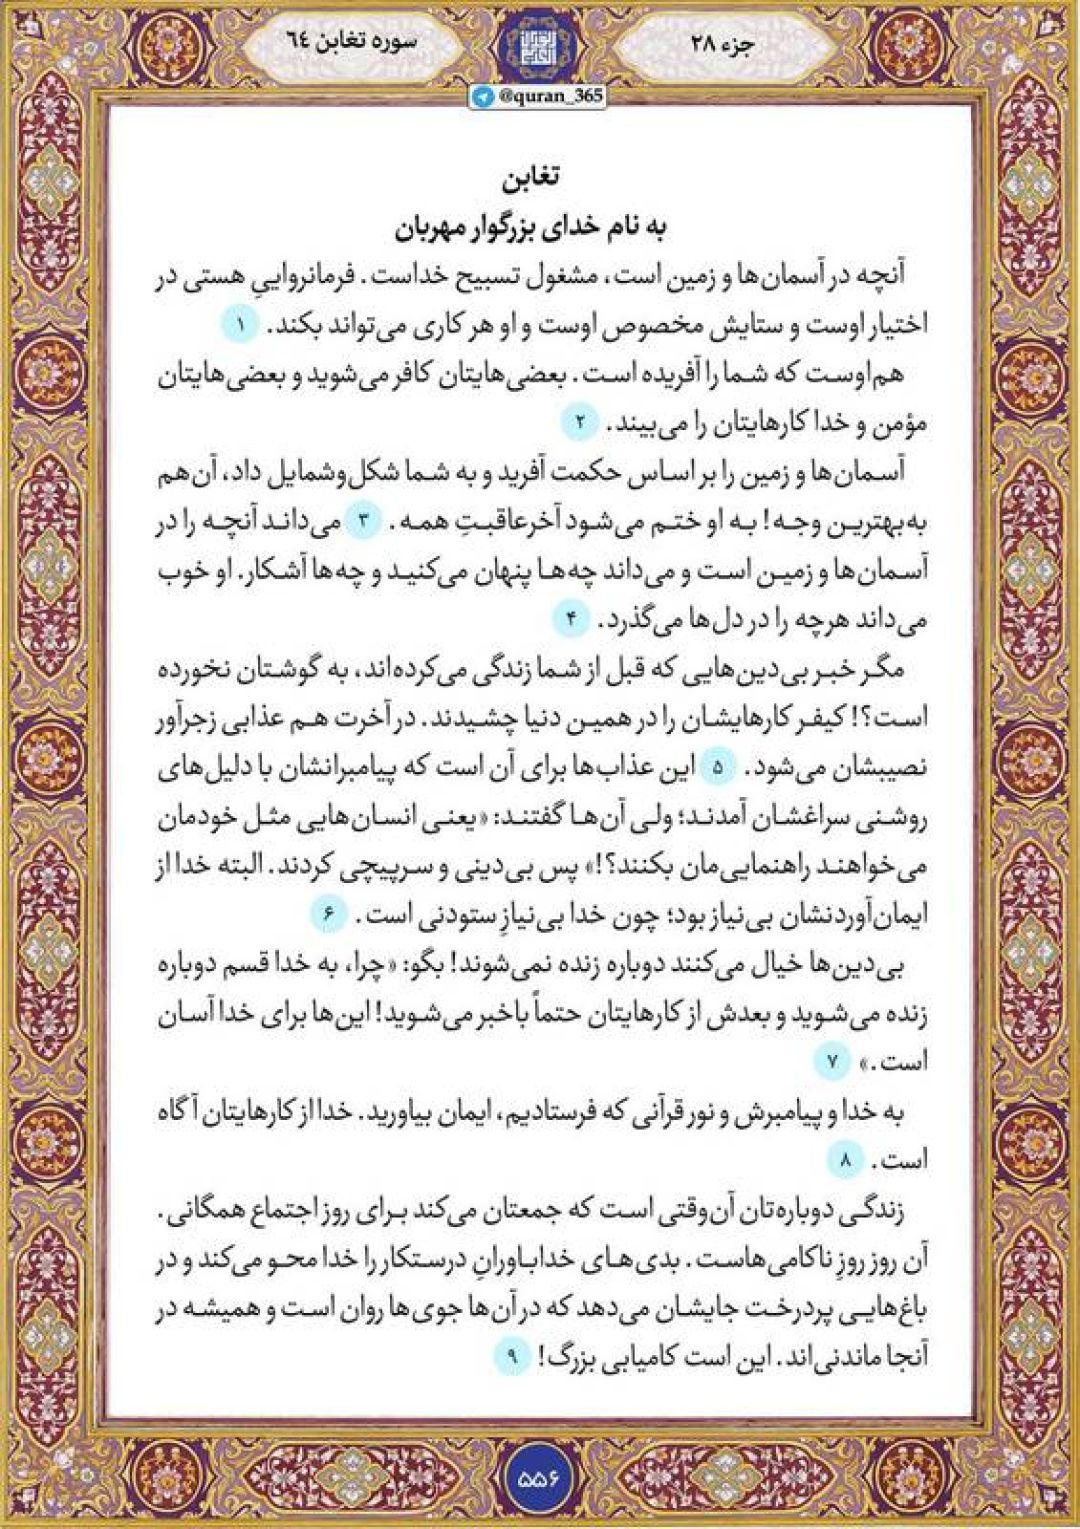 جزء ۲۸
سوره تغابن ٦٤
@quran_365
تغابن
به نام خدای بزرگوار مهربان
آنچه در آسمان‌ها و زمین است، مشغول تسبیح خداست. فرمانرواییِ هستی در
اختیار اوست و ستایش مخصوص اوست و او هر کاری می‌تواند بکند. ۱
هم‌اوست که شما را آفریده است. بعضی‌هایتان کافر می‌شوید و بعضی‌هایتان
مؤمن و خدا کارهایتان را می‌بیند. ۲
آسمان‌ها و زمین را بر اساس حکمت آفرید و به شما شکل‌وشمایل داد، آن‌هم
به‌بهترین وجه! به او ختم می‌شود آخرعاقبتِ همه. ۳ می‌داند آنچه را در
آسمان‌ها و زمین است و می‌داند چه‌ها پنهان می‌کنید و چه‌ها آشکار. او خوب
می‌داند هرچه را در دل‌ها می‌گذرد. ۴
مگر خبر بی‌دین‌هایی که قبل از شما زندگی می‌کرده‌اند، به گوشتان نخورده
است؟! کیفر کارهایشان را در همین دنیا چشیدند. در آخرت هم عذابی زجرآور
نصیبشان می‌شود. ۵ این عذاب‌ها برای آن است که پیامبرانشان با دلیل‌های
روشنی سراغشان آمدند؛ ولی آن‌ها گفتند: «یعنی انسان‌هایی مثل خودمان
می‌خواهند راهنمایی‌مان بکنند؟!» پس بی‌دینی و سرپیچی کردند. البته خدا از
ایمان‌آوردنشان بی‌نیاز بود؛ چون خدا بی‌نیازِ ستودنی است. ۶
بی‌دین‌ها خیال می‌کنند دوباره زنده نمی‌شوند! بگو: «چرا، به خدا قسم دوباره
زنده می‌شوید و بعدش از کارهایتان حتماً باخبر می‌شوید! این‌ها برای خدا آسان
است.» ۷
به خدا و پیامبرش و نور قرآنی که فرستادیم، ایمان بیاورید. خدا از کارهایتان آگاه
است. ۸
زندگی دوباره‌تان آن‌وقتی است که جمعتان می‌کند برای روز اجتماع همگانی.
آن روز روزِ ناکامی‌هاست. بدی‌های خداباورانِ درستکار را خدا محو می‌کند و در
باغ‌هایی پردرخت جایشان می‌دهد که در آن‌ها جوی‌ها روان است و همیشه در
آنجا ماندنی‌اند. این است کامیابی بزرگ! ۹
۵۵۶